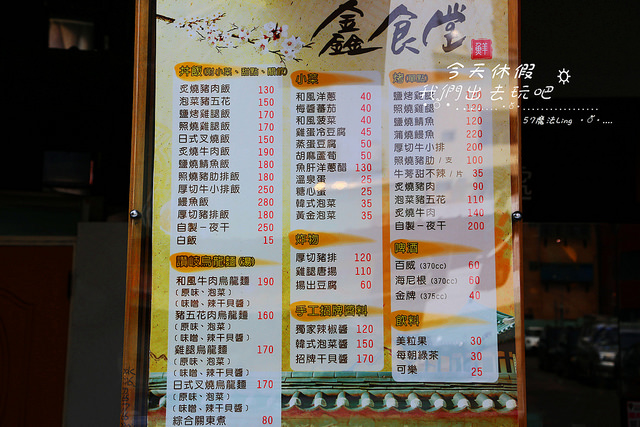 鑫食堂
鮮
今天休假
我們出去玩吧
57魔法Ling
丼飯
炙燒豬肉飯 130
泡菜豬五花 150
鹽烤雞腿飯 170
照燒雞腿飯 170
日式叉燒飯 150
炙燒牛肉飯 190
鹽燒鯖魚飯 180
照燒豬肋排飯 180
厚切牛小排飯 250
鰻魚飯 280
厚切豬排飯 180
自製一夜干 250
白飯 15
讚岐烏龍麵(湯)
和風牛肉烏龍麵 190
(原味、泡菜)
(味噌、辣干貝醬)
豬五花肉烏龍麵 160
(原味、泡菜)
(味噌、辣干貝醬)
雞腿烏龍麵 170
(原味、泡菜)
(味噌、辣干貝醬)
日式叉燒烏龍麵 170
(原味、泡菜)
(味噌、辣干貝醬)
綜合關東煮 80
小菜
和風洋蔥 40
梅醬番茄 40
和風菠菜 40
雞蛋冷豆腐 45
蒸蛋豆腐 50
胡麻蘆筍 50
魚肝洋蔥醋 130
溫泉蛋 25
糖心蛋 25
韓式泡菜 35
黃金泡菜 35
炸物
厚切豬排 120
雞腿唐揚 110
揚出豆腐 60
手工招牌醬料
獨家辣椒醬 120
韓式泡菜醬 150
招牌干貝醬 170
鹽烤雞腿
照燒雞腿 120
鹽燒鯖魚 120
蒲燒鰻魚 220
厚切牛小排 200
照燒豬肋/支 100
牛蒡甜不辣/片 35
炙燒豬肉 90
泡菜豬五花 110
炙燒牛肉 140
自製一夜干 200
啤酒
百威(370cc) 60
海尼根(370cc) 60
金牌(375cc) 40
飲料
美粒果 30
每朝綠茶 30
可樂 25